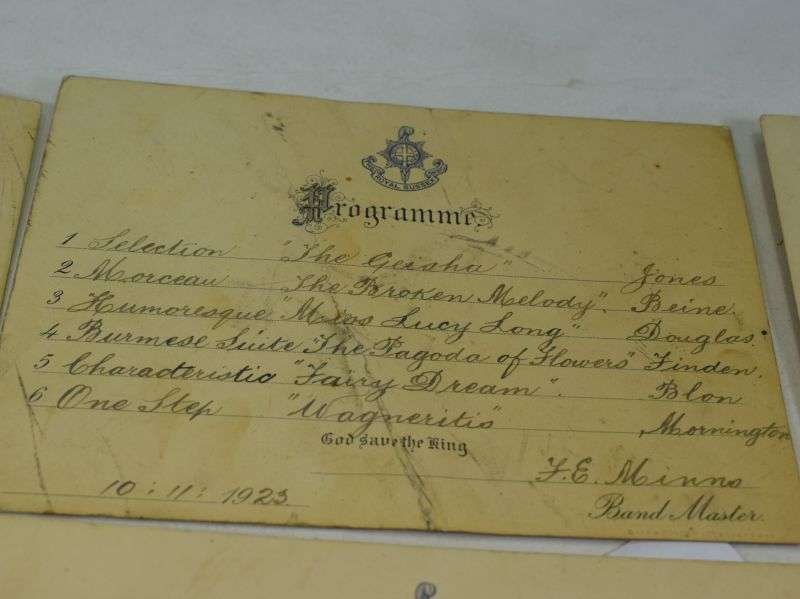 THE ROYAL SUSSEX
Programme.
1 Selection "The Geisha" Jones
2 Morceau "The Broken Melody". Beine.
3 Humoresque "Miss Lucy Long" Douglas.
4 Burmese Suite "The Pagoda of Flowers" Finden.
5 Characteristic "Fairy Dream". Blon
6 One Step "Wagneritis" Mornington
God save the King
F.E. Minns
10:11:1923
Band Master.